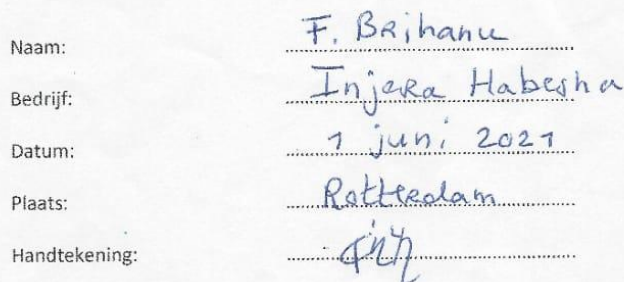 Naam: F. Brihanu
Bedrijf: Injera Habesha
Datum: 1 juni 2021
Plaats: Rotterdam
Handtekening: